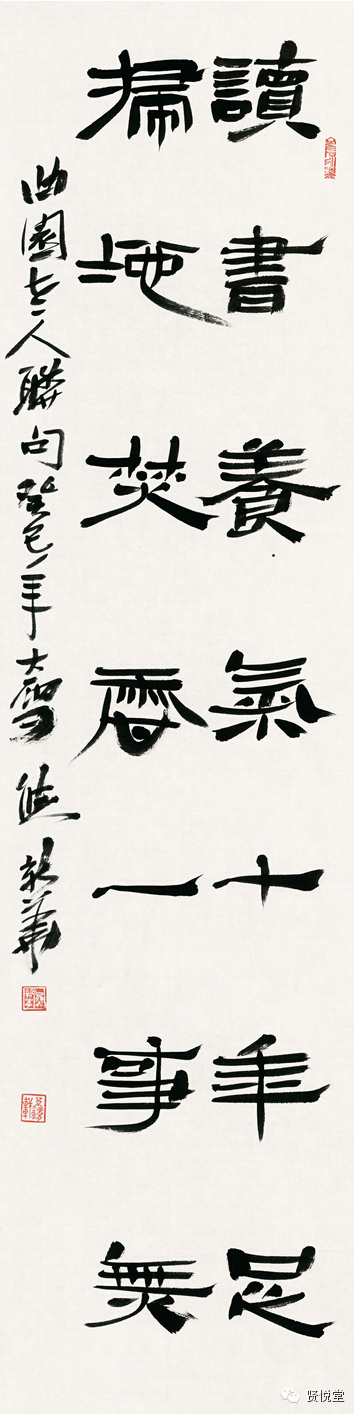 讀書養氣十年足
掃地焚香一事無
曲園老人聯句癸巳年大雪
贤悦堂